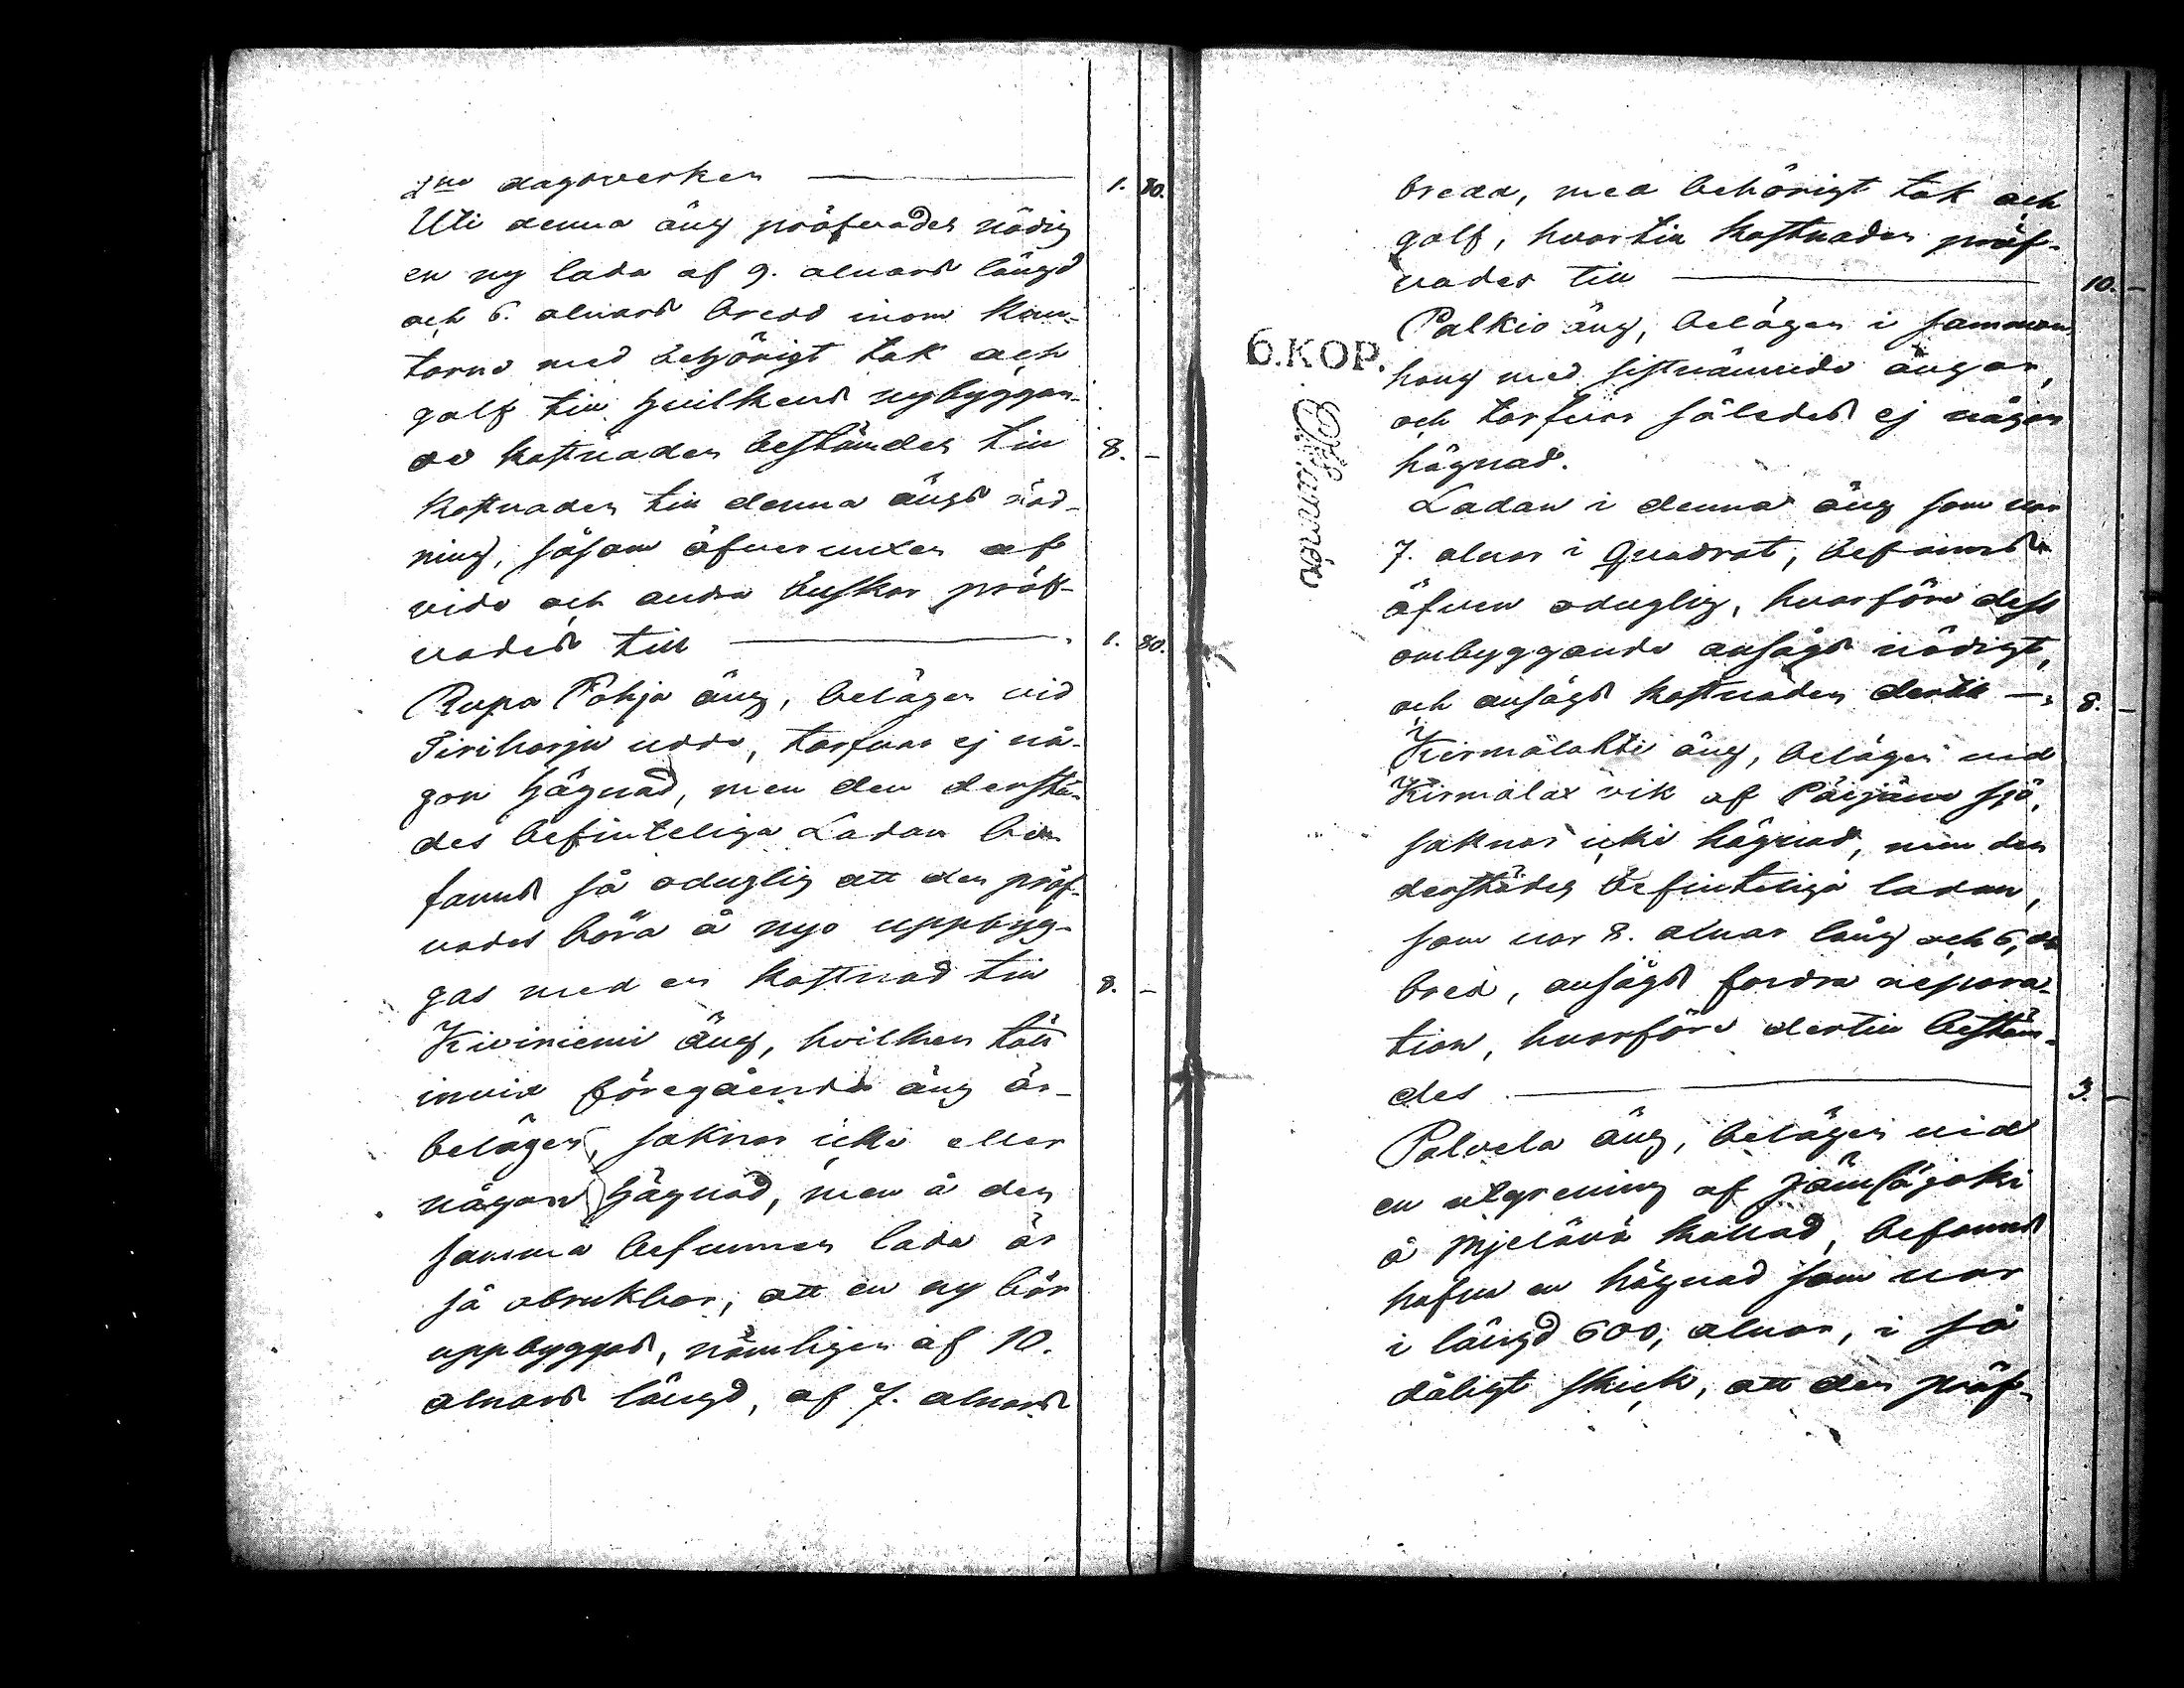 dagsverken 1. 80.
Uti denna äng pröfvades nödig
en ny lada af 9. alnars längd
och 6. alnars bredd inom knu-
tarne med behörigt tak och
golf till hvilkens nybyggan-
de kostnaden bestämdes till 8. -
Kostnaden till denna ängs röd-
ning, såsom öfvervuxen af
vide och andra buskar pröf-
vades till 1. 80.
Rupa Pohja äng, belägen vid
Siriharju udde, tarfvar ej nå-
gon hägnad, men den derstä-
des befinteliga Ladan be-
fanns så oduglig att den pröf-
vades böra å nyo uppbyg-
gas med en kostnad till 8. -
Kiviniemi äng, hvilken tätt
invid föregående äng är
belägen, saknar icke eller
någon hägnad, men å den
samma befunnen lada är
så obrukbar, att en ny bör
uppbyggas, nämligen af 10.
alnars längd, af 7. alnars
bredd, med behörigt tak och
golf, hvartill kostnaden pröf-
vades till 10. -
Palkio äng, belägen i samman
hang med sistnämnde ängar,
och tarfvar således ej någon
hägnad.
Ladan i denna äng som var
7. alnar i Quadrat, befanns
äfven oduglig, hvarföre dess
ombyggande ansågs nödigt,
och ansågs kostnaden dertill 8. -
Kirmälakti äng, belägen vid
Kirmalax vik af Päijäne sjö,
saknar icke hägnad, men den
derstädes befinteliga ladan,
som var 8. alnar lång och 6, do
bred, ansågs fordra repara-
tion, hvarföre dertill bestäm-
des 3. -
Palvela äng, belägen vid
en utgrening af Jämsäjoki
å Mjeläuä kallad, befanns
hafva en hägnad som var
i längd 600, alnar, i så
dåligt skick, att den pröf-
6.KOP.